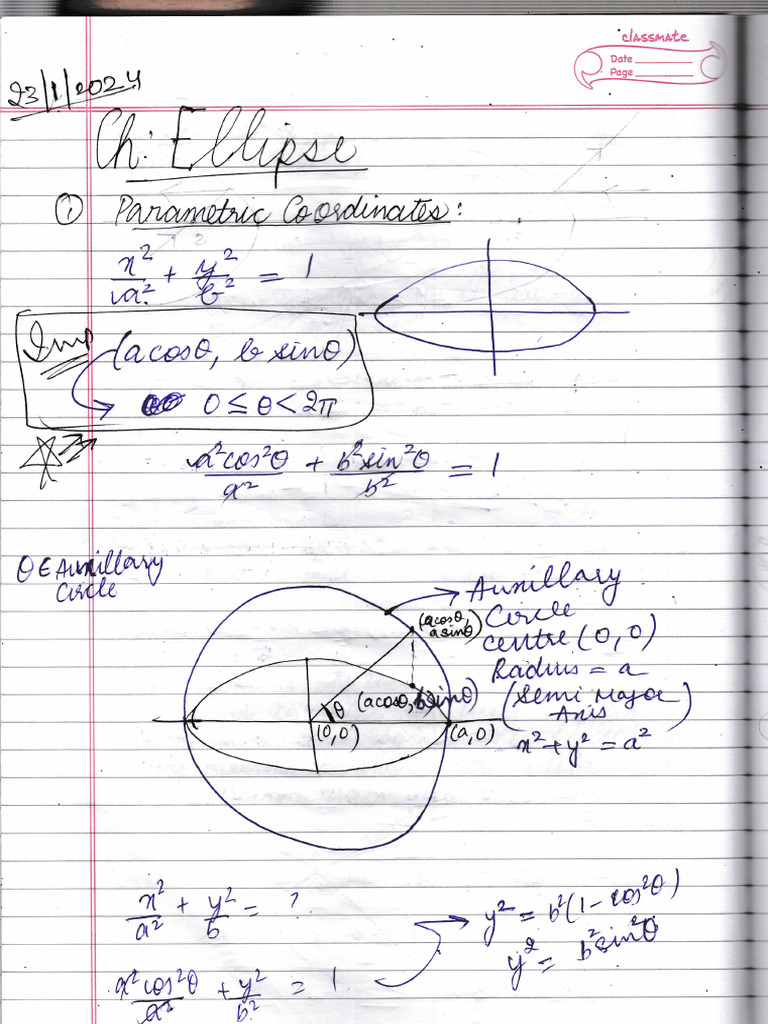 classmate
Date
Page
23/1/2024
Ch: Ellipse
① Parametric Coordinates:
x²/a² + y²/b² = 1
Imp (a cosθ, b sinθ)
0 ≤ θ < 2π
a²cos²θ/a² + b²sin²θ/b² = 1
θ ∈ Auxillary
Circle
Auxillary
Circle
centre (0,0)
Radius = a
(Semi Major
Axis)
x² + y² = a²
(a cosθ,
a sinθ)
(a cosθ, b sinθ)
θ
(0,0)
(a,0)
x²/a² + y²/b = ?
y² = b²(1 - cos²θ)
y² = b²sin²θ
a²cos²θ/a² + y²/b² = 1